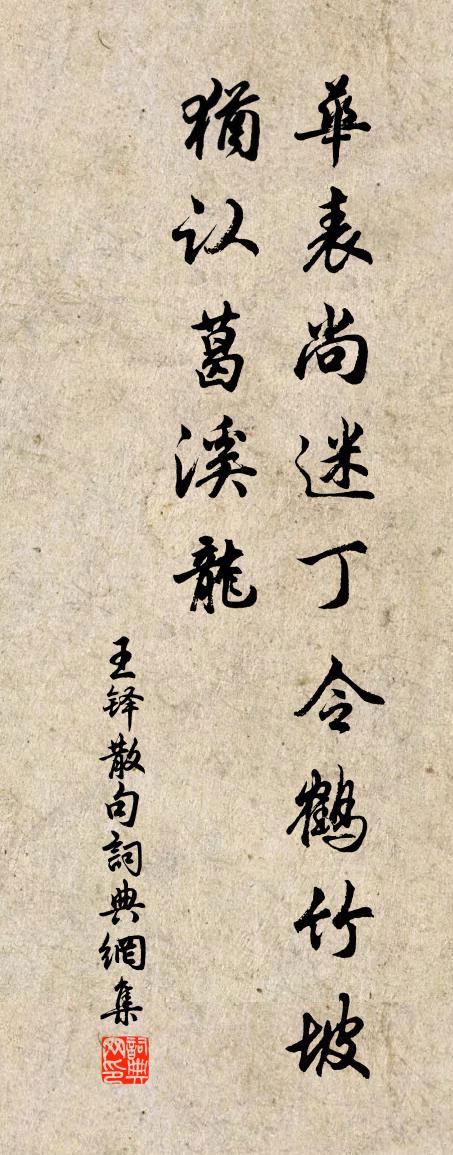 華表尚迷丁令鶴竹坡
猶认葛溪龍
王铎散句詞典網集
詞典网印